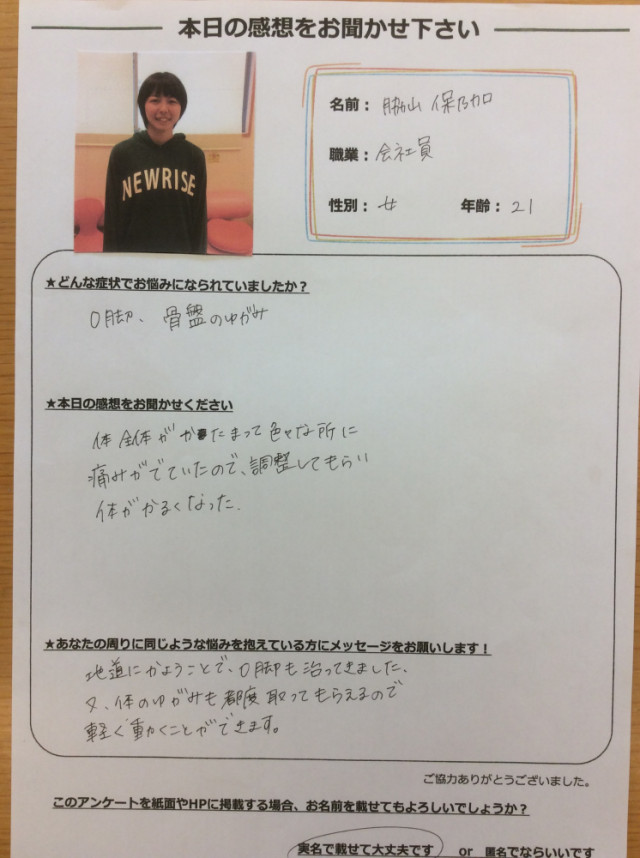 本日の感想をお聞かせ下さい
NEWRISE
名前： 脇山 保乃加
職業： 会社員
性別： 女 年齢： 21
★どんな症状でお悩みになられていましたか？
O脚、骨盤のゆがみ
★本日の感想をお聞かせください
体全体がかたまって色々な所に
痛みがでていたので、調整してもらい
体がかるくなった.
★あなたの周りに同じような悩みを抱えている方にメッセージをお願いします！
地道にかようことで、O脚も治ってきました、
又、体のゆがみも都度取ってもらえるので
軽く動くことができます。
ご協力ありがとうございました。
このアンケートを紙面やHPに掲載する場合、お名前を載せてもよろしいでしょうか？
実名で載せて大丈夫です or 匿名でならいいです